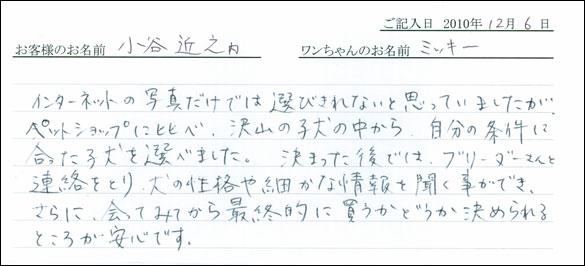 ご記入日 2010年12月6日
お客様のお名前 小谷 近之 ワンちゃんのお名前 ミッキー
インターネットの写真だけでは選びきれないと思っていましたが、
ペットショップに比べ、沢山の子犬の中から、自分の条件に
合った子犬を選べました。 決まった後では、ブリーダーさんと
連絡をとり、犬の性格や細かな情報を聞く事ができ、
さらに、会ってみてから最終的に買うかどうか決められる
ところが安心です。